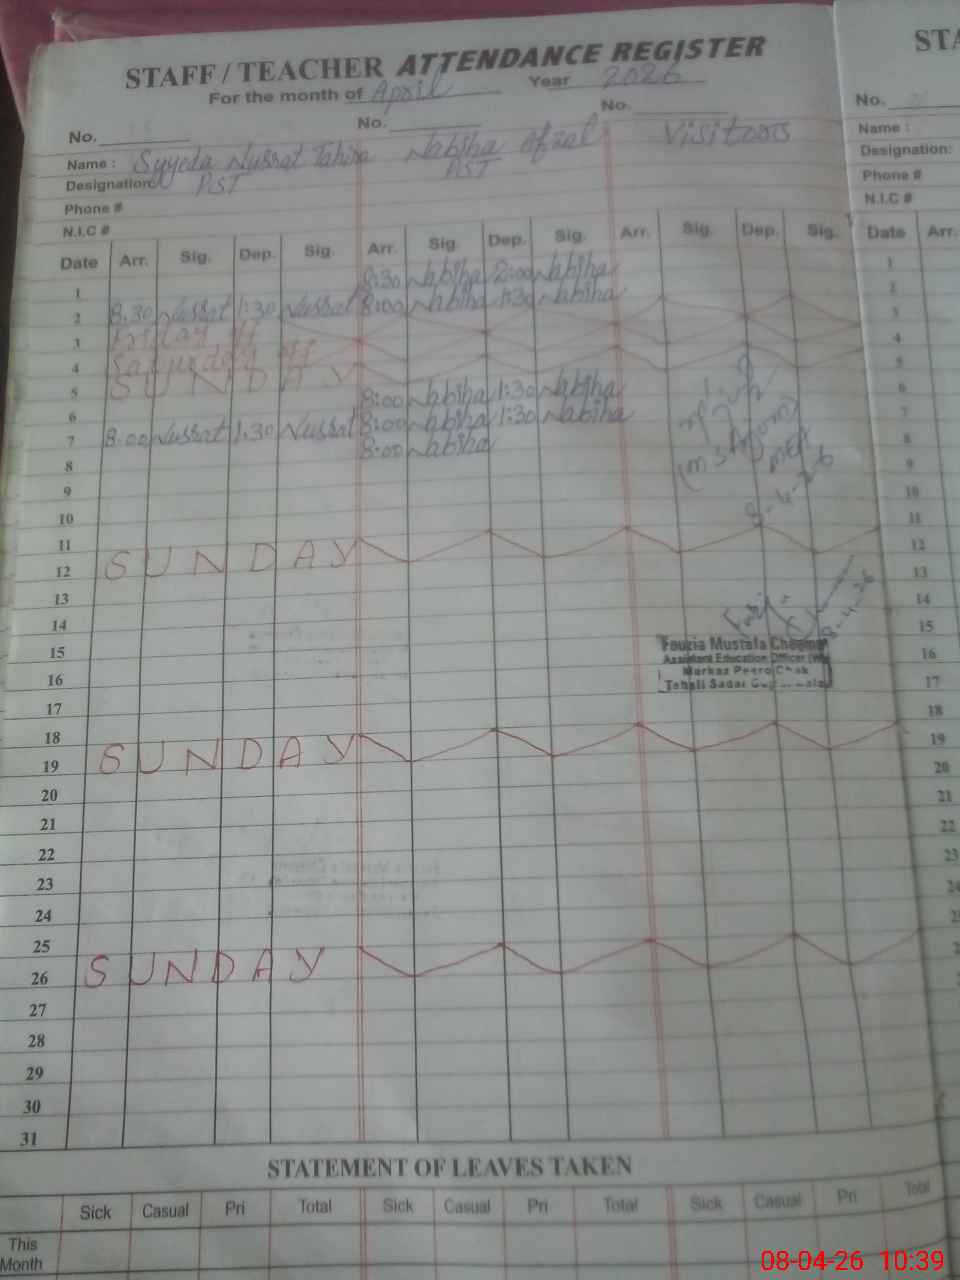 STAFF / TEACHER ATTENDANCE REGISTER
For the month of April Year 2026
No. No. No.
Name : Syyeda Nussrat Tahira Nabiha Afzal Visitors
Designation: PST PST
Phone #
N.I.C #
Date Arr. Sig. Dep. Sig. Arr. Sig. Dep. Sig. Arr. Sig. Dep. Sig.
1 8:30 Nabiha 2:00 Nabiha
2 8.30 Nussrat 1:30 Nussrat 8:00 Nabiha 1:30 Nabiha
3 Friday off
4 Saturday off
5 SUNDAY
6 8:00 Nabiha 1:30 Nabiha
7 8:00 Nussrat 1:30 Nussrat 8:00 Nabiha 1:30 Nabiha
8 8:00 Nabiha
9
10
11
12 SUNDAY
13
14
15
16
17
18
19 SUNDAY
20
21
22
23
24
25
26 SUNDAY
27
28
29
30
31
MEA
8-4-26
8-4-26
Fouzia Mustafa Cheema
Assistant Education Officer
Markaz Peero Chak
Tehsil Sadar
STATEMENT OF LEAVES TAKEN
Sick Casual Pri Total Sick Casual Pri Total Sick Casual Pri Total
This Month
STA
No.
Name :
Designation:
Phone #
N.I.C #
Date Arr.
1
2
3
4
5
6
7
8
9
10
11
12
13
14
15
16
17
18
19
20
21
22
23
24
08-04-26 10:39